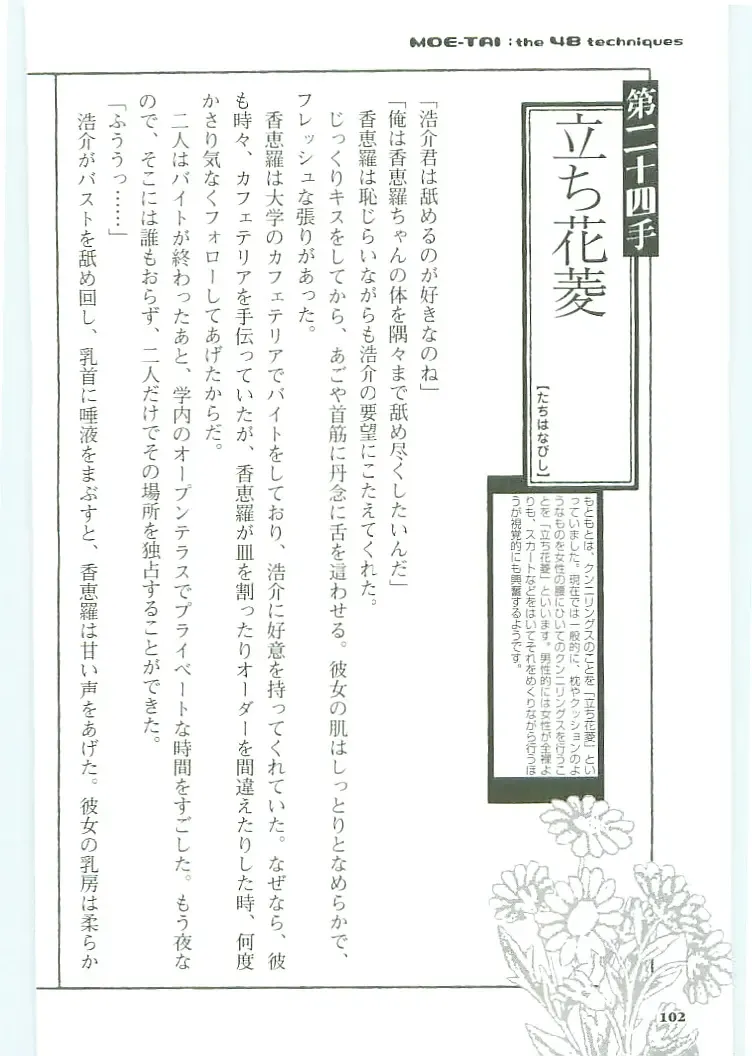 MOE-TAI : the 48 techniques
第二十四手
立ち花菱
【たちはなびし】
もともとは、クンニリングスのことを「立ち花菱」とい
っていました。現在では一般的に、枕やクッションのよ
うなものを女性の腰にひいてのクンニリングスを行うこ
とを「立ち花菱」といいます。男性的には女性が全裸よ
りも、スカートなどをはいてそれをめくりながら行うほ
うが視覚的にも興奮するようです。
「浩介君は舐めるのが好きなのね」
「俺は香恵羅ちゃんの体を隅々まで舐め尽くしたいんだ」
香恵羅は恥じらいながらも浩介の要望にこたえてくれた。
じっくりキスをしてから、あごや首筋に丹念に舌を這わせる。彼女の肌はしっとりとなめらかで、
フレッシュな張りがあった。
香恵羅は大学のカフェテリアでバイトをしており、浩介に好意を持ってくれていた。なぜなら、彼
も時々、カフェテリアを手伝っていたが、香恵羅が皿を割ったりオーダーを間違えたりした時、何度
かさり気なくフォローしてあげたからだ。
二人はバイトが終わったあと、学内のオープンテラスでプライベートな時間をすごした。もう夜な
ので、そこには誰もおらず、二人だけでその場所を独占することができた。
「ふううっ……」
浩介がバストを舐め回し、乳首に唾液をまぶすと、香恵羅は甘い声をあげた。彼女の乳房は柔らか
102